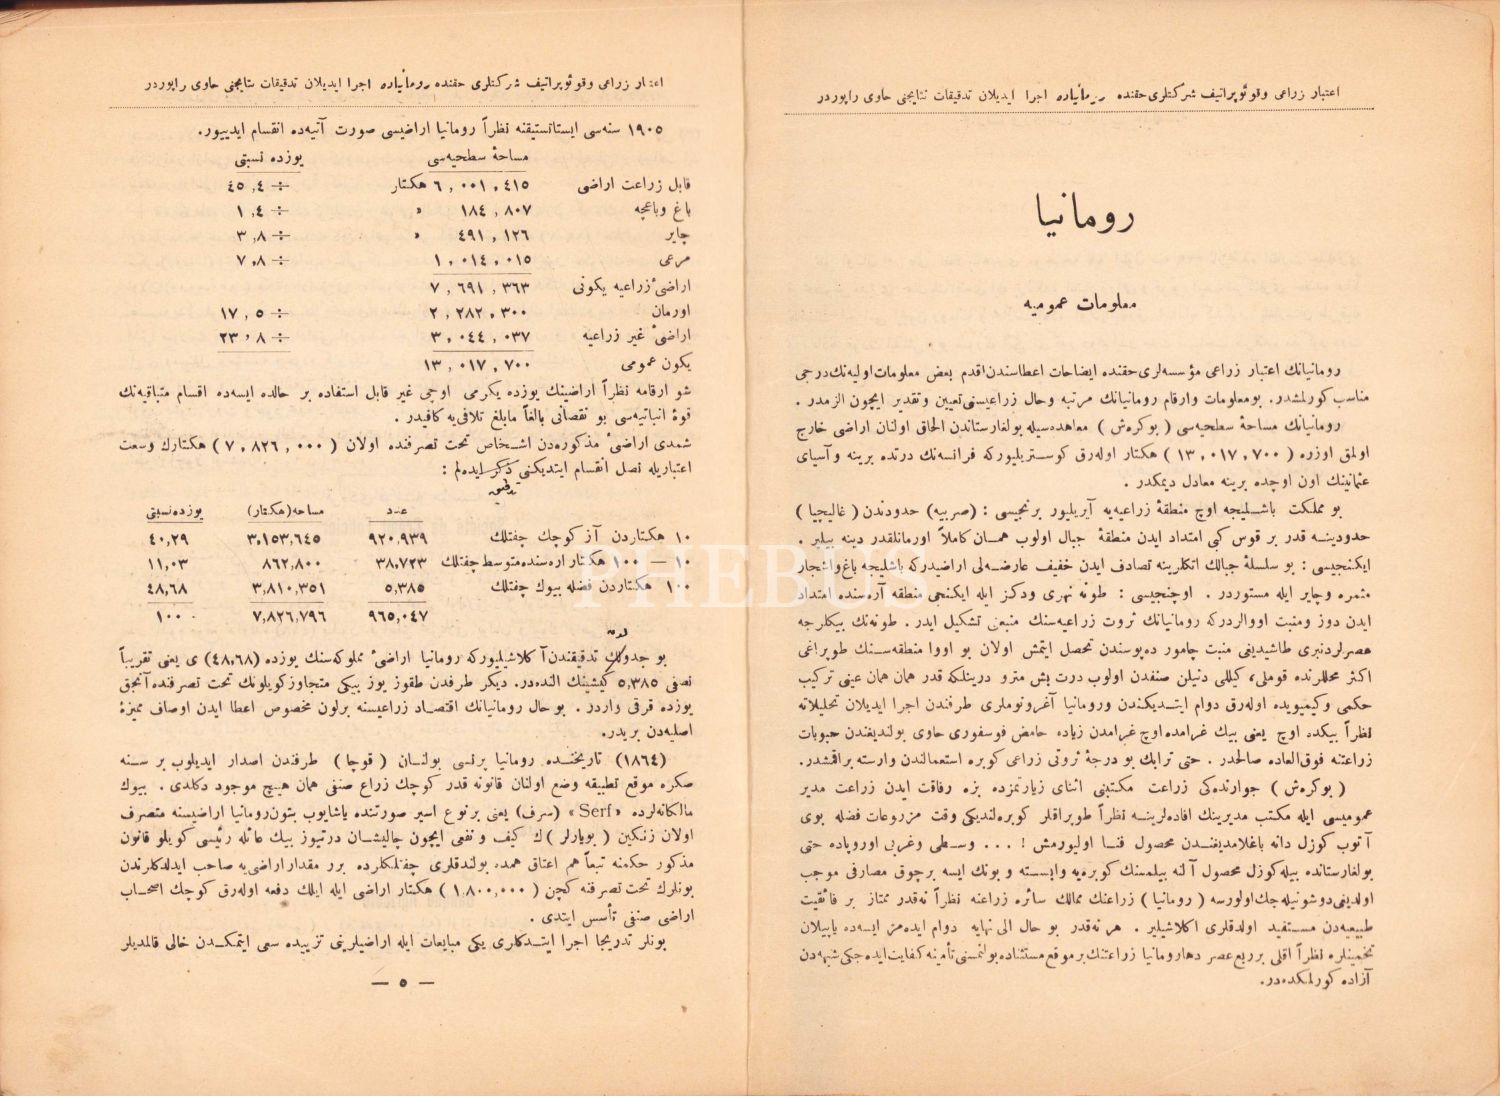 اعتبار زراعی وقوئوپراتیف شرکتلری حقنده رومانیاده اجرا ایدیلان تدقیقات نتایجنی حاوی راپوردر
رومانیا
معلومات عمومیه
رومانیانك اعتبار زراعی مؤسسه‌لری حقنده ایضاحات اعطاسندن اقدم بعض معلومات اولیه‌نك درجی
مناسب کورلمشدر. بومعلومات وارقام رومانیانك مرتبه وحال زراعیسنی تعیین وتقدیر ایچون الزمدر .
رومانیانك مساحهٔ سطحیه‌سی ( بوکرش ) معاهده‌سیله بولغارستاندن الحاق اولنان اراضی خارج
اولمق اوزره ( ١٣,٠١٧,٧٠٠ ) هکتار اوله‌رق کوستریلیورکه فرانسه‌نك درتده برینه وآسیای
عثمانینك اون اوچده برینه معادل دیمکدر .
بو مملکت باشلیجه اوچ منطقهٔ زراعیه‌یه آیریلیور برنجیسی : (صربیه) حدودندن ( غالیچیا )
حدودینه قدر بر قوس کبی امتداد ایدن منطقهٔ جبال اولوب همان کاملاً اورمانلقدر دینه بیلیر .
ایکنجیسی : بو سلسلهٔ جبالك اتکلرینه تصادف ایدن خفیف عارضه‌لی اراضیدرکه باشلیجه باغ واشجار
مثمره وچایر ایله مستوردر . اوچنجیسی : طونه نهری ودکز ایله ایکنجی منطقه آره‌سنده امتداد
ایدن دوز ومنبت اووالردرکه رومانیانك ثروت زراعیه‌سنك منبعنی تشکیل ایدر . طونه‌نك بیکلرجه
عصرلردنبری طاشیدیغی منبت چامور ده‌پوسندن تحصل ایتمش اولان بو اووا منطقه‌سنك طوپراغی
اکثر محللرنده قوملی، کیللی دنیلن صنفدن اولوب درت بش مترو درینلکه قدر همان همان عینی ترکیب
حکمی وکیمیویده اوله‌رق دوام ایتدیکندن ورومانیا آغرونوملری طرفندن اجرا ایدیلان تحلیلاته
نظراً بیکده اوچ یعنی بیك غرامده اوچ غرامدن زیاده حامض فوسفوری حاوی بولندیغندن حبوبات
زراعتنه فوق‌العاده صالحدر . حتی ترابك بو درجهٔ ثروتی زراعی کوبره استعمالندن وارسته براقمشدر.
( بوکرش ) جوارنده‌کی زراعت مکتبنی اثنای زیارتمزده بزه رفاقت ایدن زراعت مدیر
عمومیسی ایله مکتب مدیرینك افاده‌لرینه نظراً طوپراقلر کوبره‌لندیکی وقت مزروعات فضله بوی
آتوب کوزل دانه باغلامدیغندن محصول فنا اولیورمش ! ... وسطی وغربی اوروپاده حتی
بولغارستانده بیله کوزل محصول آلنه بیلمسنك کوبره‌یه وابسته و بونك ایسه برچوق مصارفی موجب
اولدیغی دوشونیله‌جك اولورسه ( رومانیا ) زراعتنك ممالك سائره زراعتنه نظراً نه‌قدر ممتاز بر فائقیت
طبیعیه‌دن مستفید اولدقلری اکلاشیلیر . هر نه‌قدر بو حال الی نهایه دوام ایده‌مز ایسه‌ده یاپیلان
تخمینلره نظراً اقلی بر ربع عصر دها رومانیا زراعتنك بر موقع مستثناده بولنمسنی تأمینه کفایت ایده‌جکی شبهه‌دن
آزاده کورلمکده‌در.
اعتبار زراعی وقوئوپراتیف شرکتلری حقنده رومانیاده اجرا ایدیلان تدقیقات نتایجنی حاوی راپوردر
١٩٠٥ سنه‌سی ایستاتستیقنه نظراً رومانیا اراضیسی صورت آتیه‌ده انقسام ایدییور.
مساحهٔ سطحیه‌سی یوزده نسبتی
قابل زراعت اراضی ٦,٠٠١,٤١٥ هکتار ÷ ٤٥,٤
باغ وباغچه ١٨٤,٨٠٧ » ÷ ١,٤
چایر ٤٩١,١٢٦ » ÷ ٣,٨
مرعی ١,٠١٤,٠١٥ ÷ ٧,٨
اراضیٔ زراعیه یکونی ٧,٦٩١,٣٦٣
اورمان ٢,٢٨٢,٣٠٠ ÷ ١٧,٥
اراضیٔ غیر زراعیه ٣,٠٤٤,٠٣٧ ÷ ٢٣,٨
یکون عمومی ١٣,٠١٧,٧٠٠
شو ارقامه نظراً اراضینك یوزده یکرمی اوچی غیر قابل استفاده بر حالده ایسه‌ده اقسام متباقیه‌نك
قوهٔ انباتیه‌سی بو نقصانی بالغاً مابلغ تلافی‌یه کافیدر .
شمدی اراضیٔ مذکوره‌دن اشخاص تحت تصرفنده اولان ( ٧,٨٢٦,٠٠٠ ) هکتارك وسعت
اعتباریله نصل انقسام ایتدیکنی ذکر ایده‌لم :
تدقیق
عدد مساحه (هکتار) یوزده نسبتی
١٠ هکتاردن آز کوچك چفتلك ٩٢٠,٩٣٩ ٣,١٥٣,٦٤٥ ٤٠,٢٩
١٠ — ١٠٠ هکتار اره‌سنده متوسط چفتلك ٣٨,٧٢٣ ٨٦٢,٨٠٠ ١١,٠٣
١٠٠ هکتاردن فضله بیوك چفتلك ٥,٣٨٥ ٣,٨١٠,٣٥١ ٤٨,٦٨
٩٦٥,٠٤٧ ٧,٨٢٦,٧٩٦ ١٠٠
بو جدولك تدقیقندن آکلاشیلیورکه رومانیا اراضیٔ مملوکه‌سنك یوزده (٤٨,٦٨) ی یعنی تقریباً
نصفی ٥,٣٨٥ کیشینك النده‌در. دیکر طرفدن طقوز یوز بیکی متجاوز کویلونك تحت تصرفنده آنجق
یوزده قرقی واردر . بو حال رومانیانك اقتصاد زراعیسنه برلون مخصوص اعطا ایدن اوصاف ممیزهٔ
اصلیه‌دن بریدر.
(١٨٦٤) تاریخنده رومانیا پرنسی بولنان ( قوچا ) طرفندن اصدار ایدیلوب بر سنه
صکره موقع تطبیقه وضع اولنان قانونه قدر کوچك زراع صنفی همان هیچ موجود دکلدی . بیوك
مالکانه‌لرده «Serf» (سرف) یعنی برنوع اسیر صورتنده یاشایوب بتون رومانیا اراضیسنه متصرف
اولان زنکین ( بویارلر ) ك کیف و نفعی ایچون چالیشان درتیوز بیك عائله رئیسی کویلو قانون
مذکور حکمنه تبعاً هم اعتاق همده بولندقلری چفتلکلرده برر مقدار اراضی‌یه صاحب ایدلدکلرندن
بونلرك تحت تصرفنه کچن ( ١,٨٠٠,٠٠٠ ) هکتار اراضی ایله ایلك دفعه اوله‌رق کوچك اصحاب
اراضی صنفی تأسس ایتدی .
بونلر تدریجا اجرا ایتدکلری یکی مبایعات ایله اراضیلرینی تزییده سعی ایتمکدن خالی قالمدیلر
— ٥ —
PHEBUS